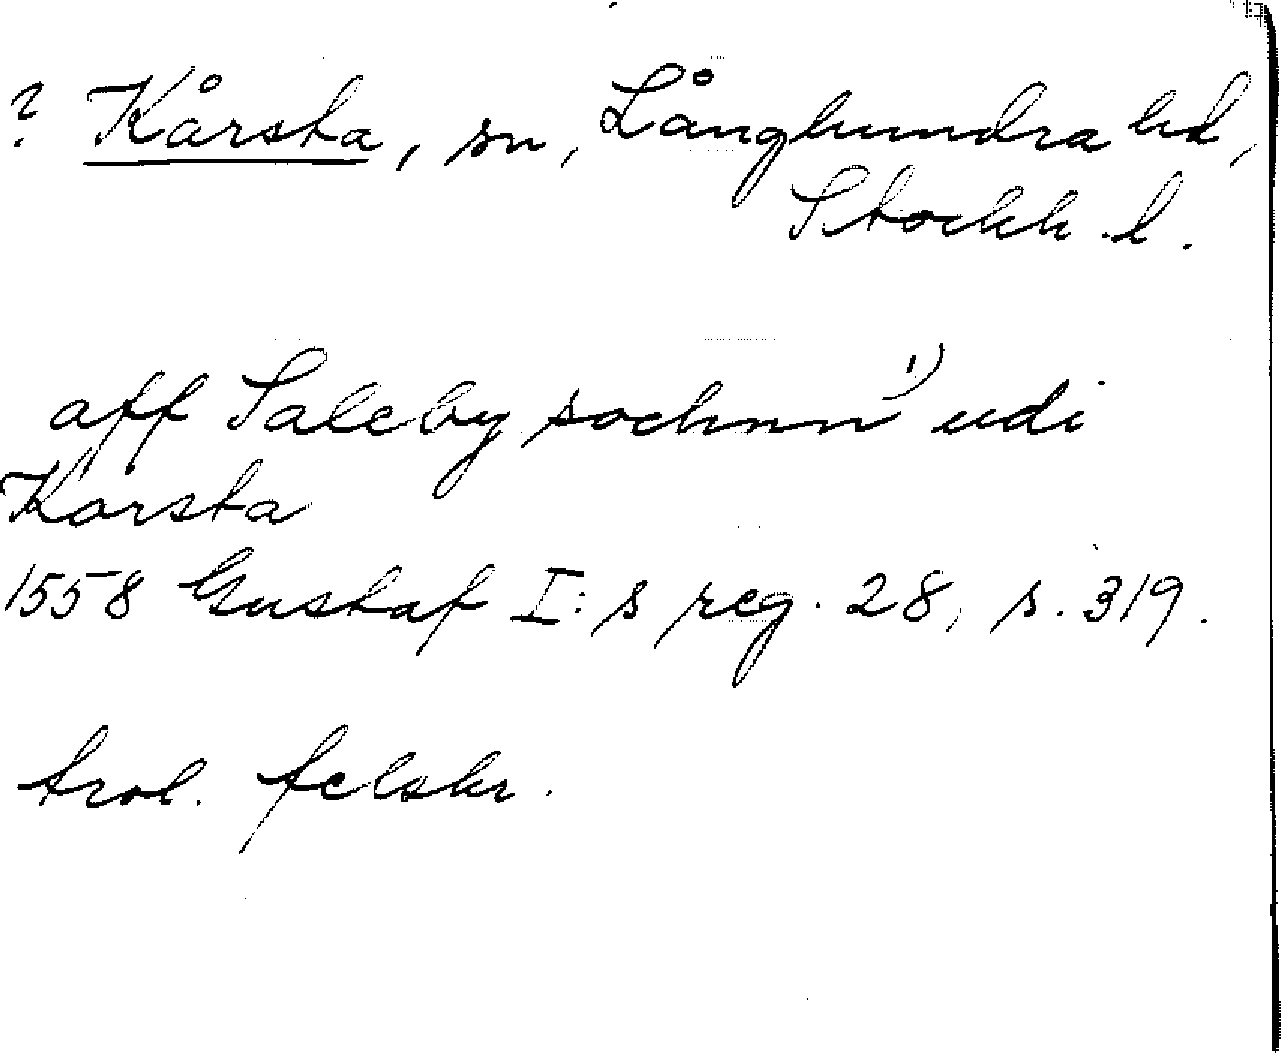 ? Kårsta, sn, Långhundra hd,
Stockh. l.
aff Saleby sochnn¹⁾ udi
Karsta
1558 Gustaf I:s reg. 28, s. 319.
trol. felskr.